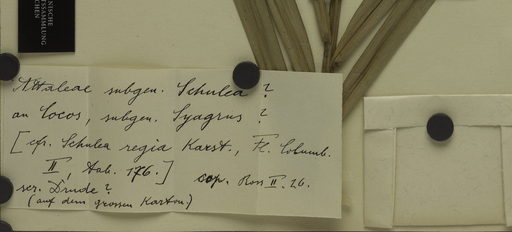 NISCHE
SSAMMLUNG
CHEN
Attaleae subgen. Scheelea ?
an Cocos, subgen. Syagrus ?
[cfr. Scheelea regia Karst., Fl. Columb.
II, Tab. 176.] cop. Ross II. 26.
scr. Drude ?
(auf dem grossen Karton)